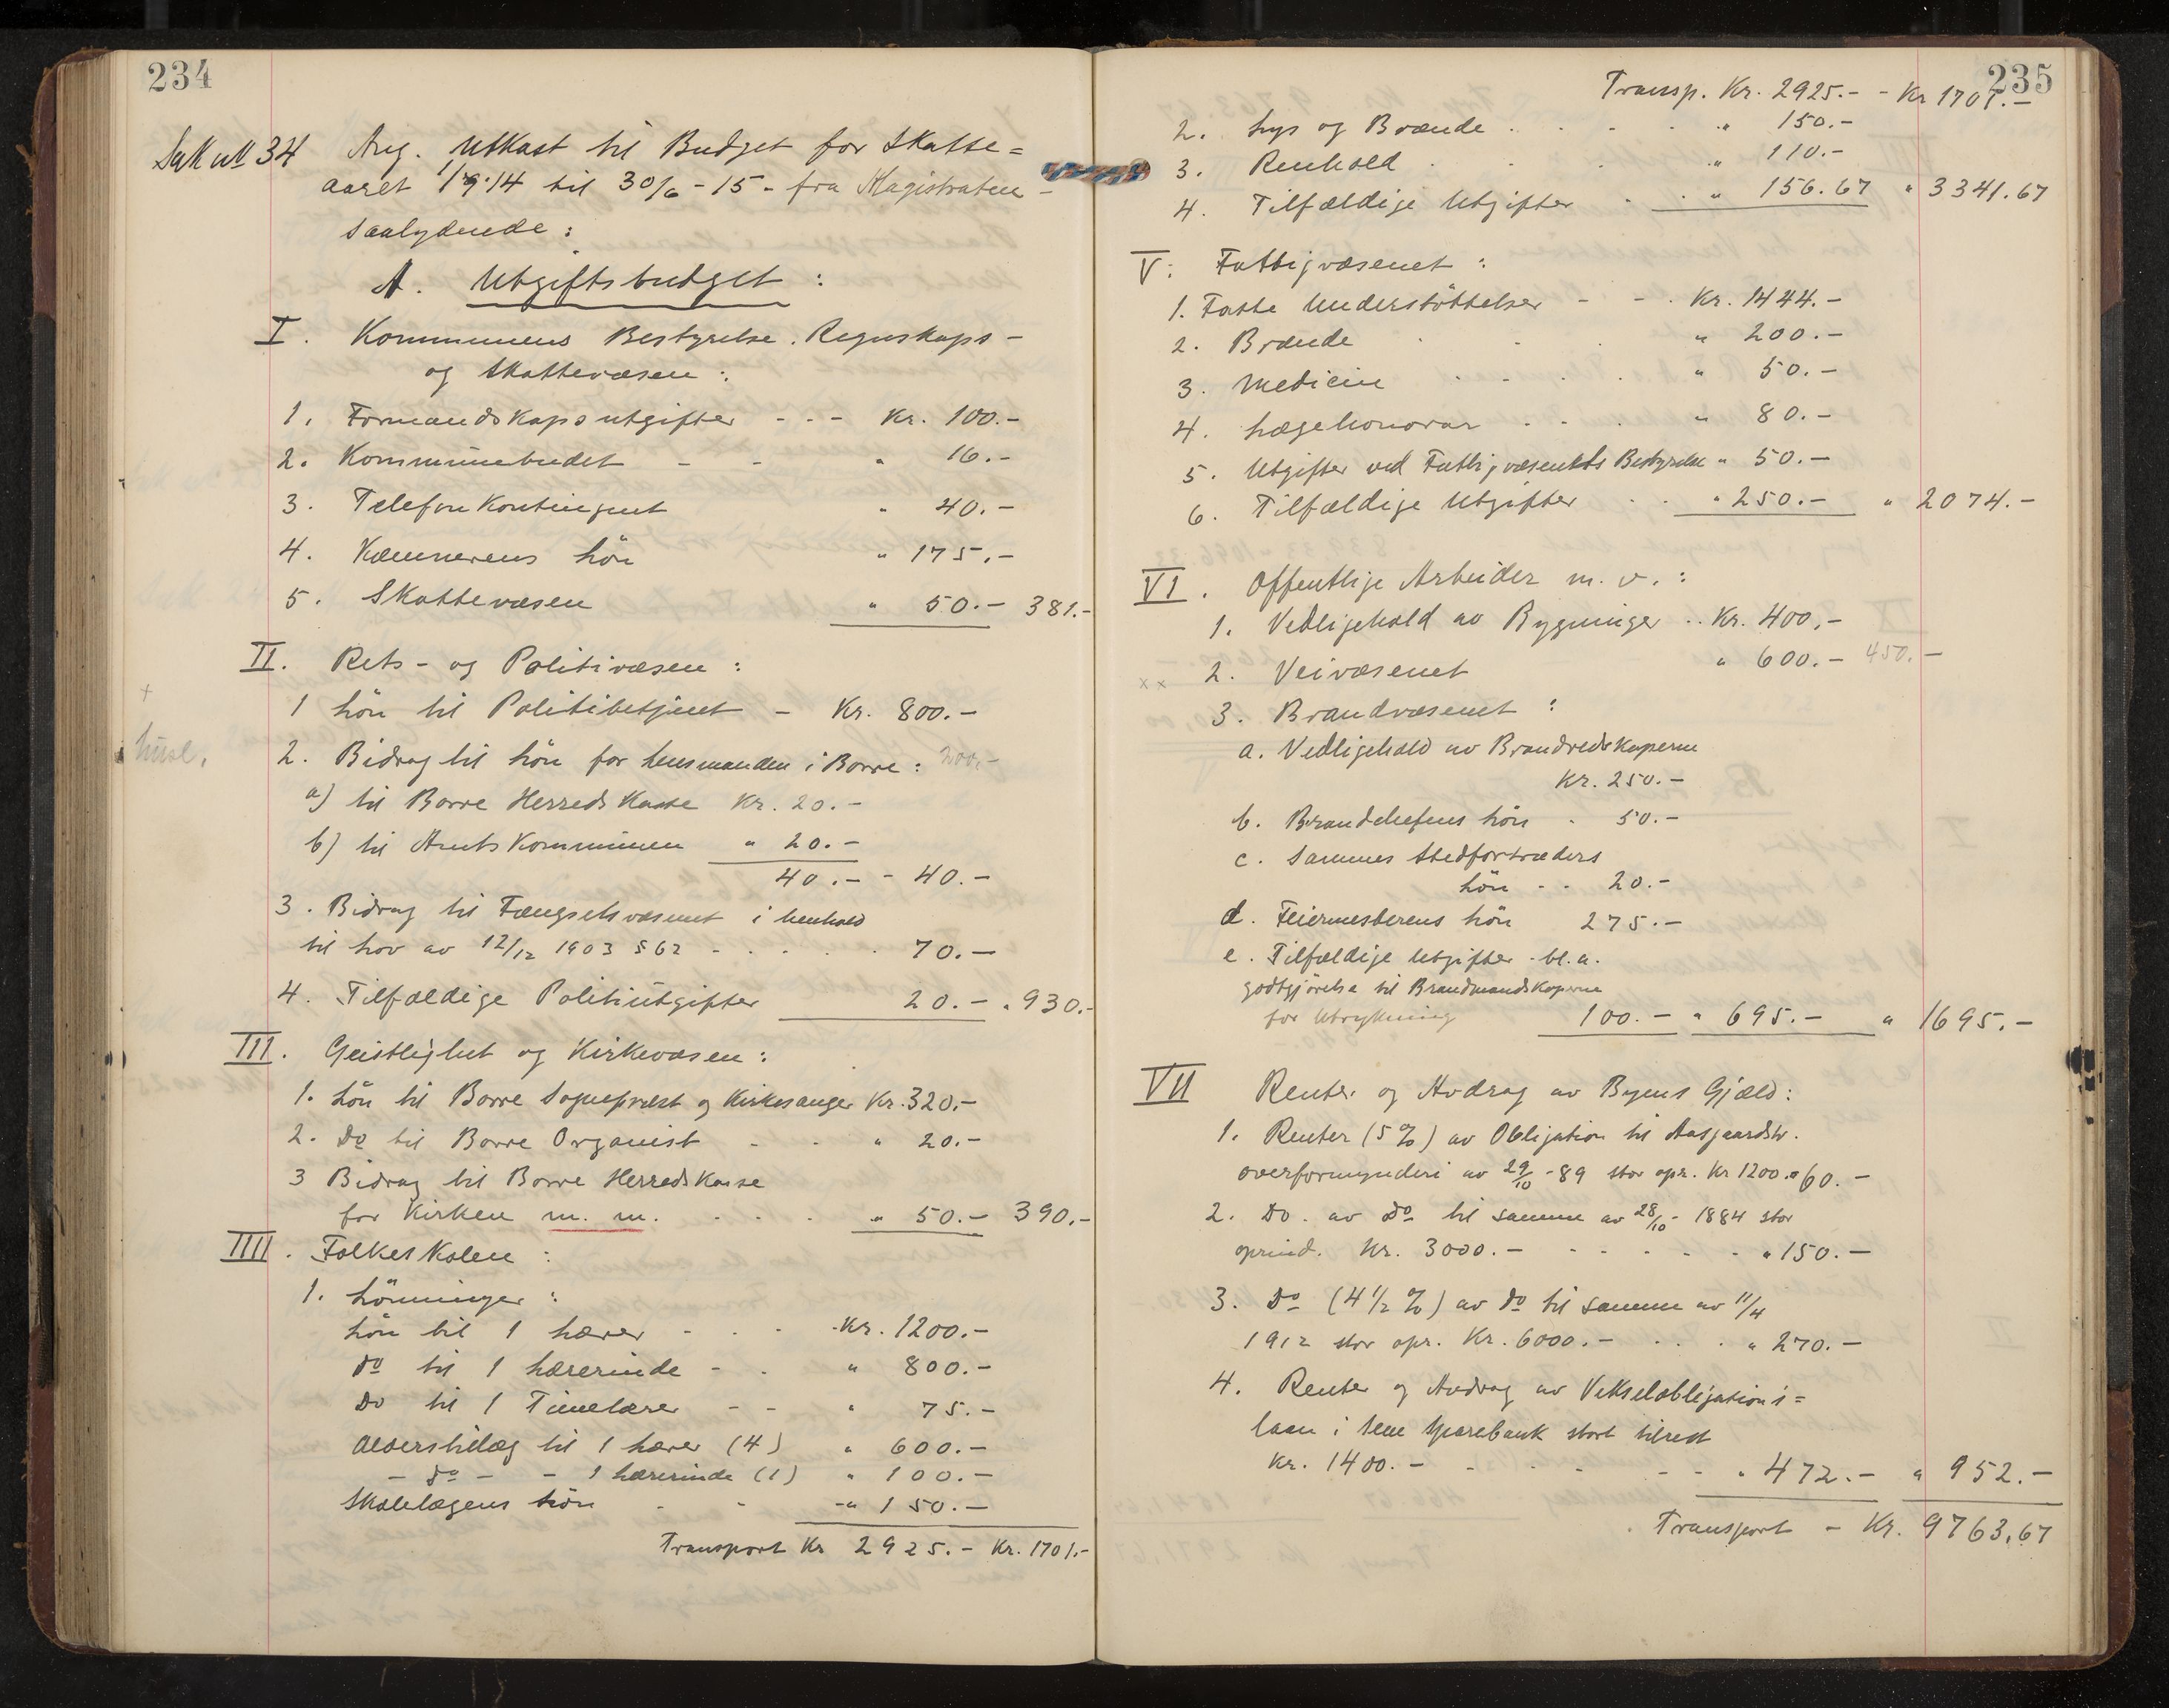 234
Sak No 34 Ang. Utkast til Budget for Skatte=
aaret 1/7 - 14 til 30/6 - 15 - fra Magistraten -
saalydende:
A. Utgiftsbudget:
I. Kommunens Bestyrelse. Regnskaps-
og Skattevæsen:
1. Formandskapsutgifter - - - Kr. 100.-
2. Kommunebudet - - " 16.-
3. Telefonkontingent " 40.-
4. Kæmnerens Lön " 175.-
5. Skattevæsen " 50.- 381.-
II. Rets- og Politivæsen:
1 Lön til Politibetjent - Kr. 800.-
2. Bidrag til Lön for Lensmanden i Borre: 200.-
a) til Borre Herredskasse Kr. 20.-
b) til Amtskommunen " 20.-
40.- - 40.-
3. Bidrag til Fængselsvæsenet i Henhold
til Lov av 12/12 1903 § 62 - . . . . 70.-
4. Tilfældige Politiutgifter 20.- " 930.-
III. Geistlighet og Kirkevæsen:
1. Lön til Borre Sogneprest og Kirkesanger Kr. 320.-
2. Do til Borre Organist - - " 20.-
3 Bidrag til Borre Herredskasse
for Kirken m. m. . . . " 50.- 390.-
IIII. Folkeskolen:
1. Lönninger:
Lön til 1 Lærer - - - Kr. 1200.-
do til 1 Lærerinde - . " 800.-
Do til 1 Timelærer - - " 75.-
Alderstillæg til 1 Lærer (4) " 600.-
- do - - 1 Lærerinde (1) " 100.-
Skolelægens Lön - - -" 150.-
Transport Kr 2925.- Kr. 1701.-
235
Transp. Kr. 2925.- - Kr 1701.-
2. Lys og Brænde . . . . " 150.-
3. Renhold . . " 110.-
4. Tilfældige Utgifter . . " 156.67 " 3341.67
V: Fattigvæsenet:
1. Faste Understöttelser - - . Kr. 1444.-
2. Brænde . . . " 200.-
3. Medicin . . . . " 50.-
4. Lægehonorar . . . " 80.-
5. Utgifter ved Fattigvæsenets Bestyrelse " 50.-
6. Tilfældige Utgifter . . " 250.- " 2074.-
VI. Offentlige Arbeider m. v.:
1. Vedligehold av Bygninger .. Kr. 400.-
x x 2. Veivæsenet " 600.- 450.-
3. Brandvæsenet:
a. Vedligehold av Brandredskaperne
Kr. 250.-
b. Brandchefens Lön . 50.-
c. Sammes Stedfortræders
Lön - - 20.-
d. Feiermesterens Lön 275.-
e. Tilfældige Utgifter - bl. a.
godtgjörelse til Brandmandskaperne
for Utrykning 100.- " 695.- " 1695.-
VII Renter og Avdrag av Byens Gjæld:
1. Renter (5 %) av Obligation til Aasgaardstr.
overformynderi av 29/10 - 89 stor opr. Kr 1200. " 60.-
2. Do. av do til samme av 28/10 - 1884 stor
oprind. Kr. 3000.- - - - - - " 150.-
3. Do (4 1/2 %) av do til samme av 11/4
1912 stor opr. Kr. 6000.- . . . " 270.-
4. Renter og Avdrag av Vekselobligations=
laan i Sem Sparebank stort tilrest
Kr. 1400.- - - - - - " 472.- " 952.-
Transport - Kr. 9763,67